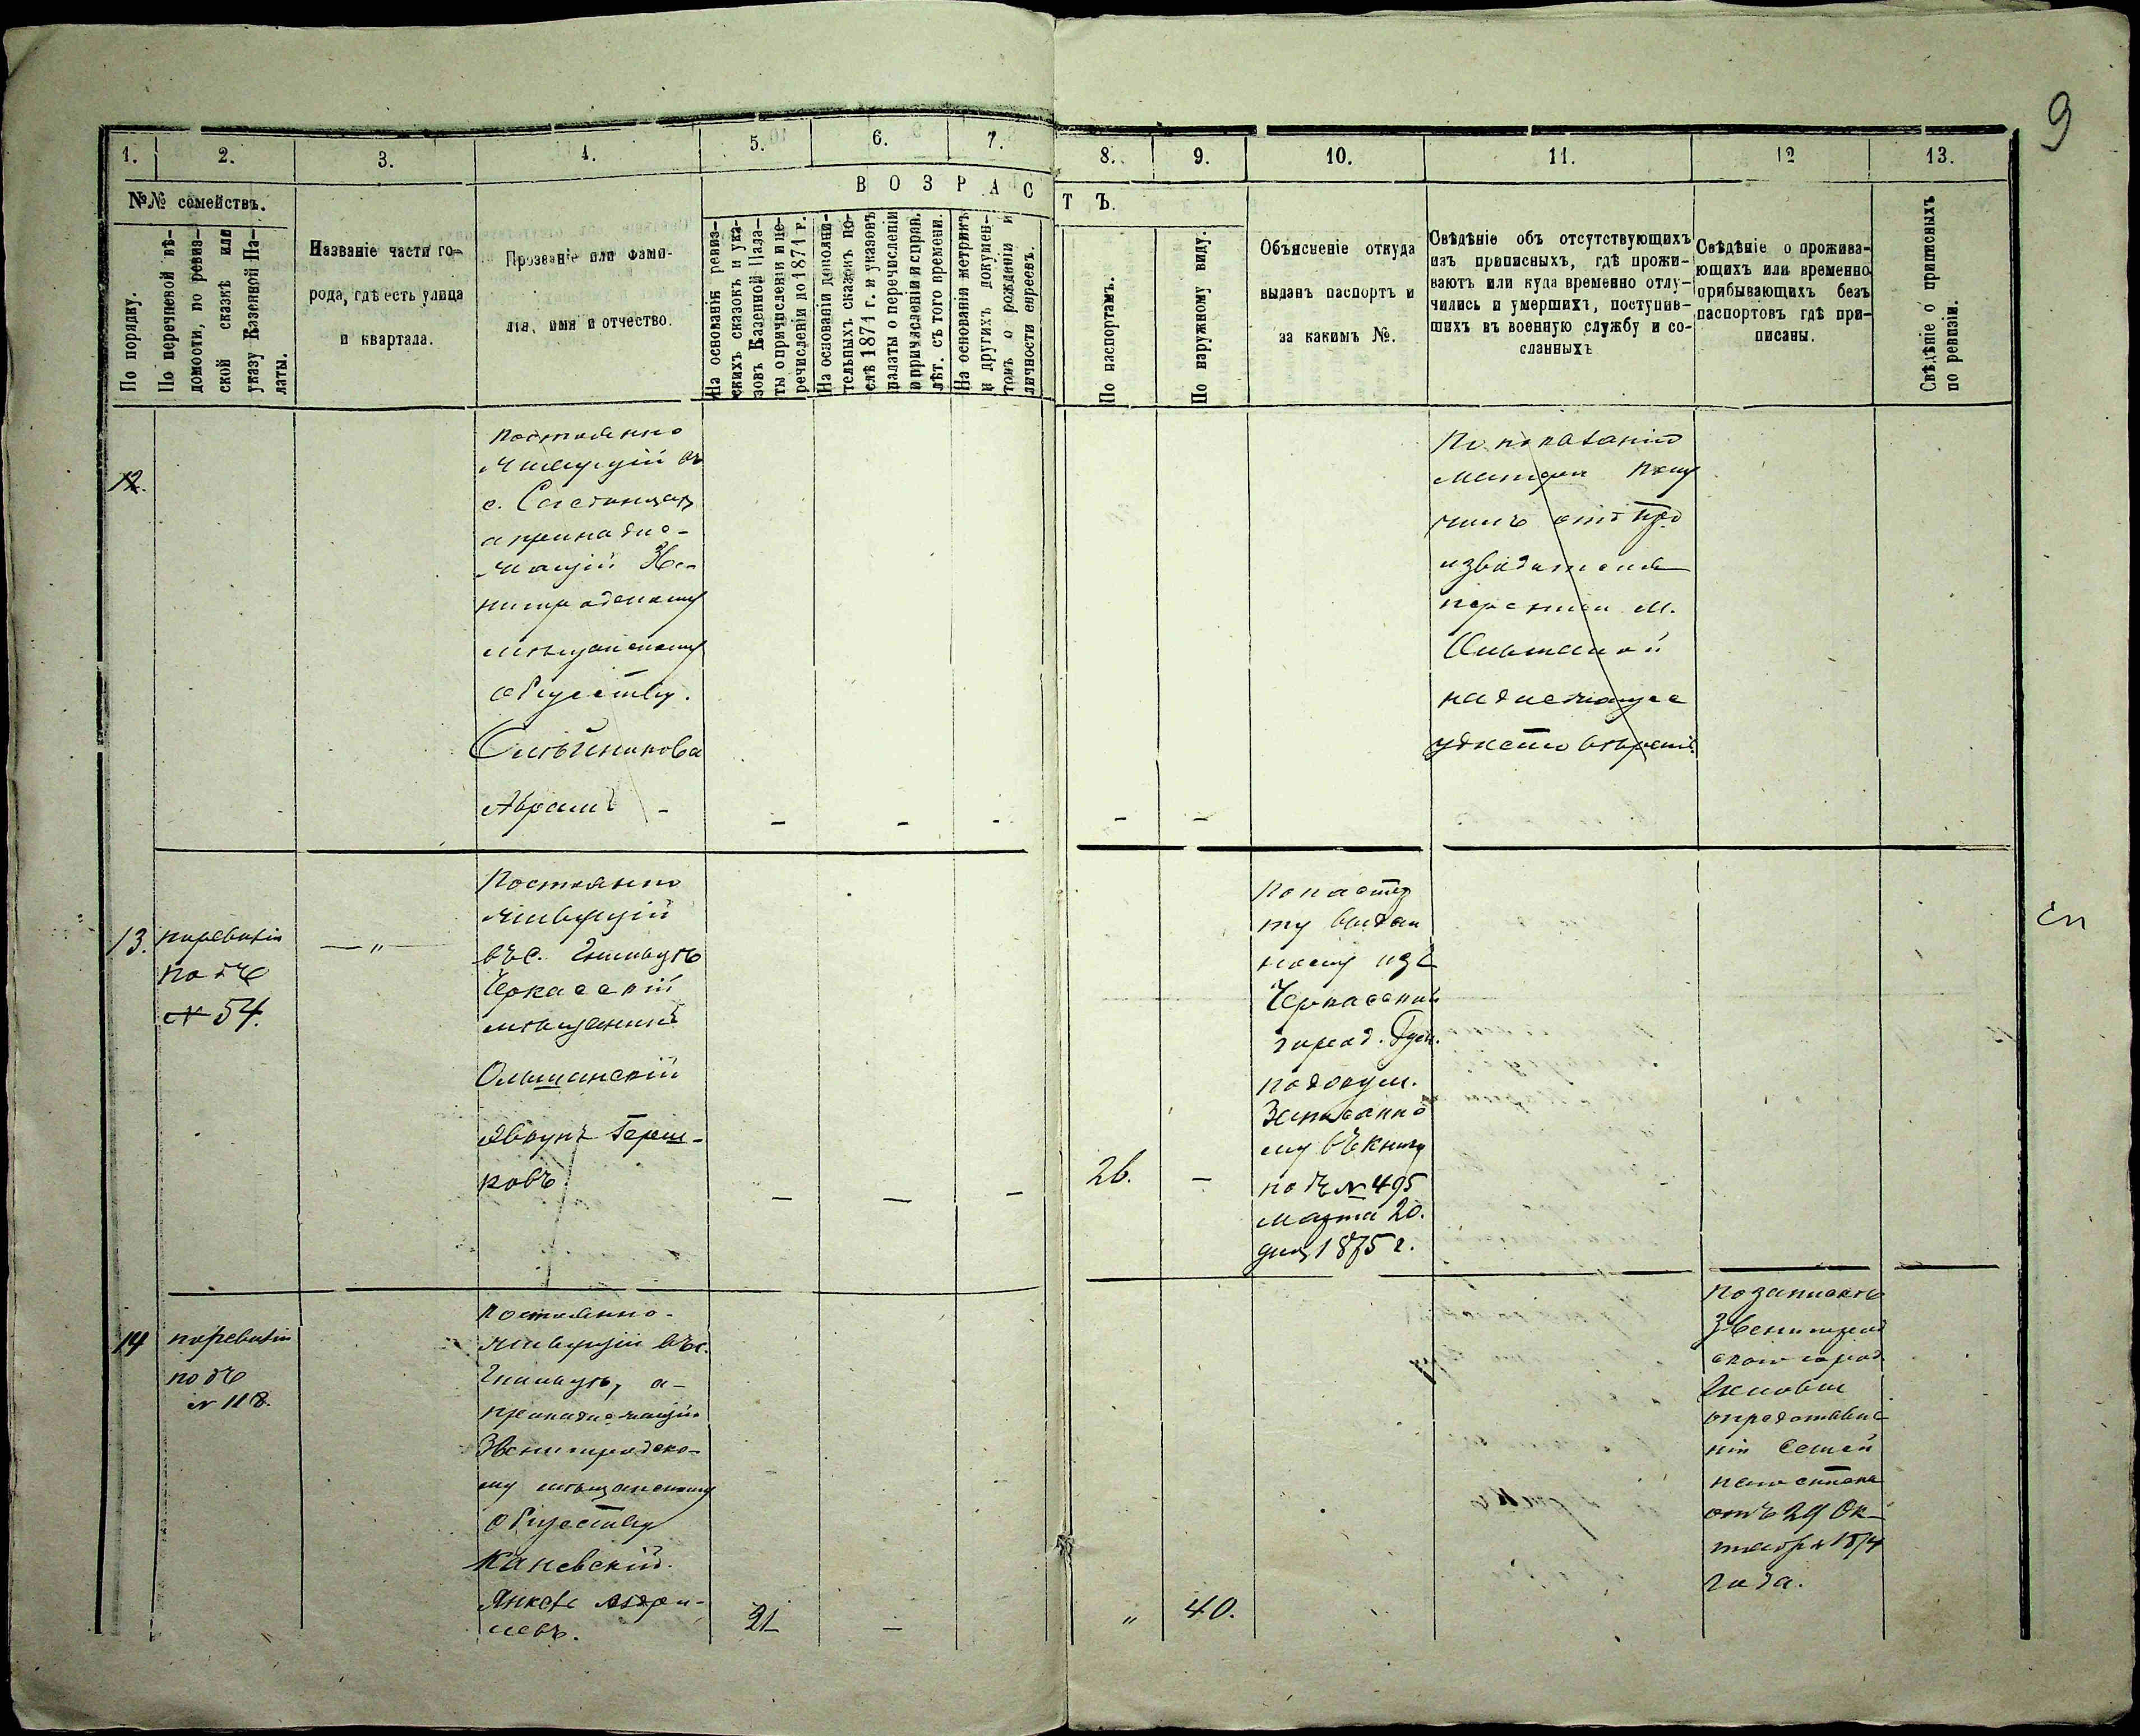 9
1.
2.
3.
4.
5.
6.
7.
8.
9.
10.
11.
12
13.
№№ семействъ.
По порядку.
По перечневой вѣ-
домости, по ревиз-
ской сказкѣ или
указу Казенной Па-
латы.
Названіе части го-
рода, гдѣ есть улица
и квартала.
Прозваніе или фами-
лія, имя и отчество.
ВОЗРАС
ТЪ.
На основаніи ревиз-
скихъ сказокъ и ука-
зовъ Казенной Пала-
ты о причисленіи и пе-
речисленіи до 1874 г.
На основаніи дополни-
тельныхъ сказокъ по-
слѣ 1874 г. и указовъ
палаты о перечисленіи
и причисленіи и справ.
лѣт. съ того времени.
На основаніи метрикъ
и другихъ докумен-
товъ о рожденіи и
личности евреевъ.
По паспортамъ.
По наружному виду.
Объясненіе откуда
выданъ паспортъ и
за какимъ №.
Свѣдѣніе объ отсутствующихъ
изъ приписныхъ, гдѣ прожи-
ваютъ или куда временно отлу-
чились и умершихъ, поступив-
шихъ въ военную службу и со-
сланныхъ
Свѣдѣніе о прожива-
ющихъ или временно
прибывающихъ безъ
паспортовъ гдѣ при-
писаны.
Свѣдѣніе о приписныхъ
по ревизіи.
12.
Постоянно
живущій въ
с.
а принадле-
жащій Зве-
нигородскому
мѣщанскому
обществу.
Олѣйникова
Абрамъ -
По показанію
матери полу
чилъ отъ про
изводителя
переписи м.
Ольшаной
надлежащее
удостовѣреніе.
13.
поревизіи
подъ
№ 54.
— " —
Постоянно
живущій
въ с. Гнилъцѣ
Черкасскій
мѣщанинъ
Ольшанскій
Герш-
ковъ
26.
По паспор
ту выдан
ному изъ
Черкасской
город. Думы
подокум.
Записанно
му въ книгу
подъ № 495
марта 20.
дня 1875 г.
14
поревизіи
подъ
№ 118.
Постоянно-
живущій въ с.
Гнильцѣ, а-
принадлежащій
Звенигородско-
му мѣщанскому
обществу
Каневскій.
Янкель
21
"
40.
Позапискѣ
Звенигород
ского город.
Головы
опредставле
ніи Семей
наго списка
отъ 29 Ок-
тября 1874
года.